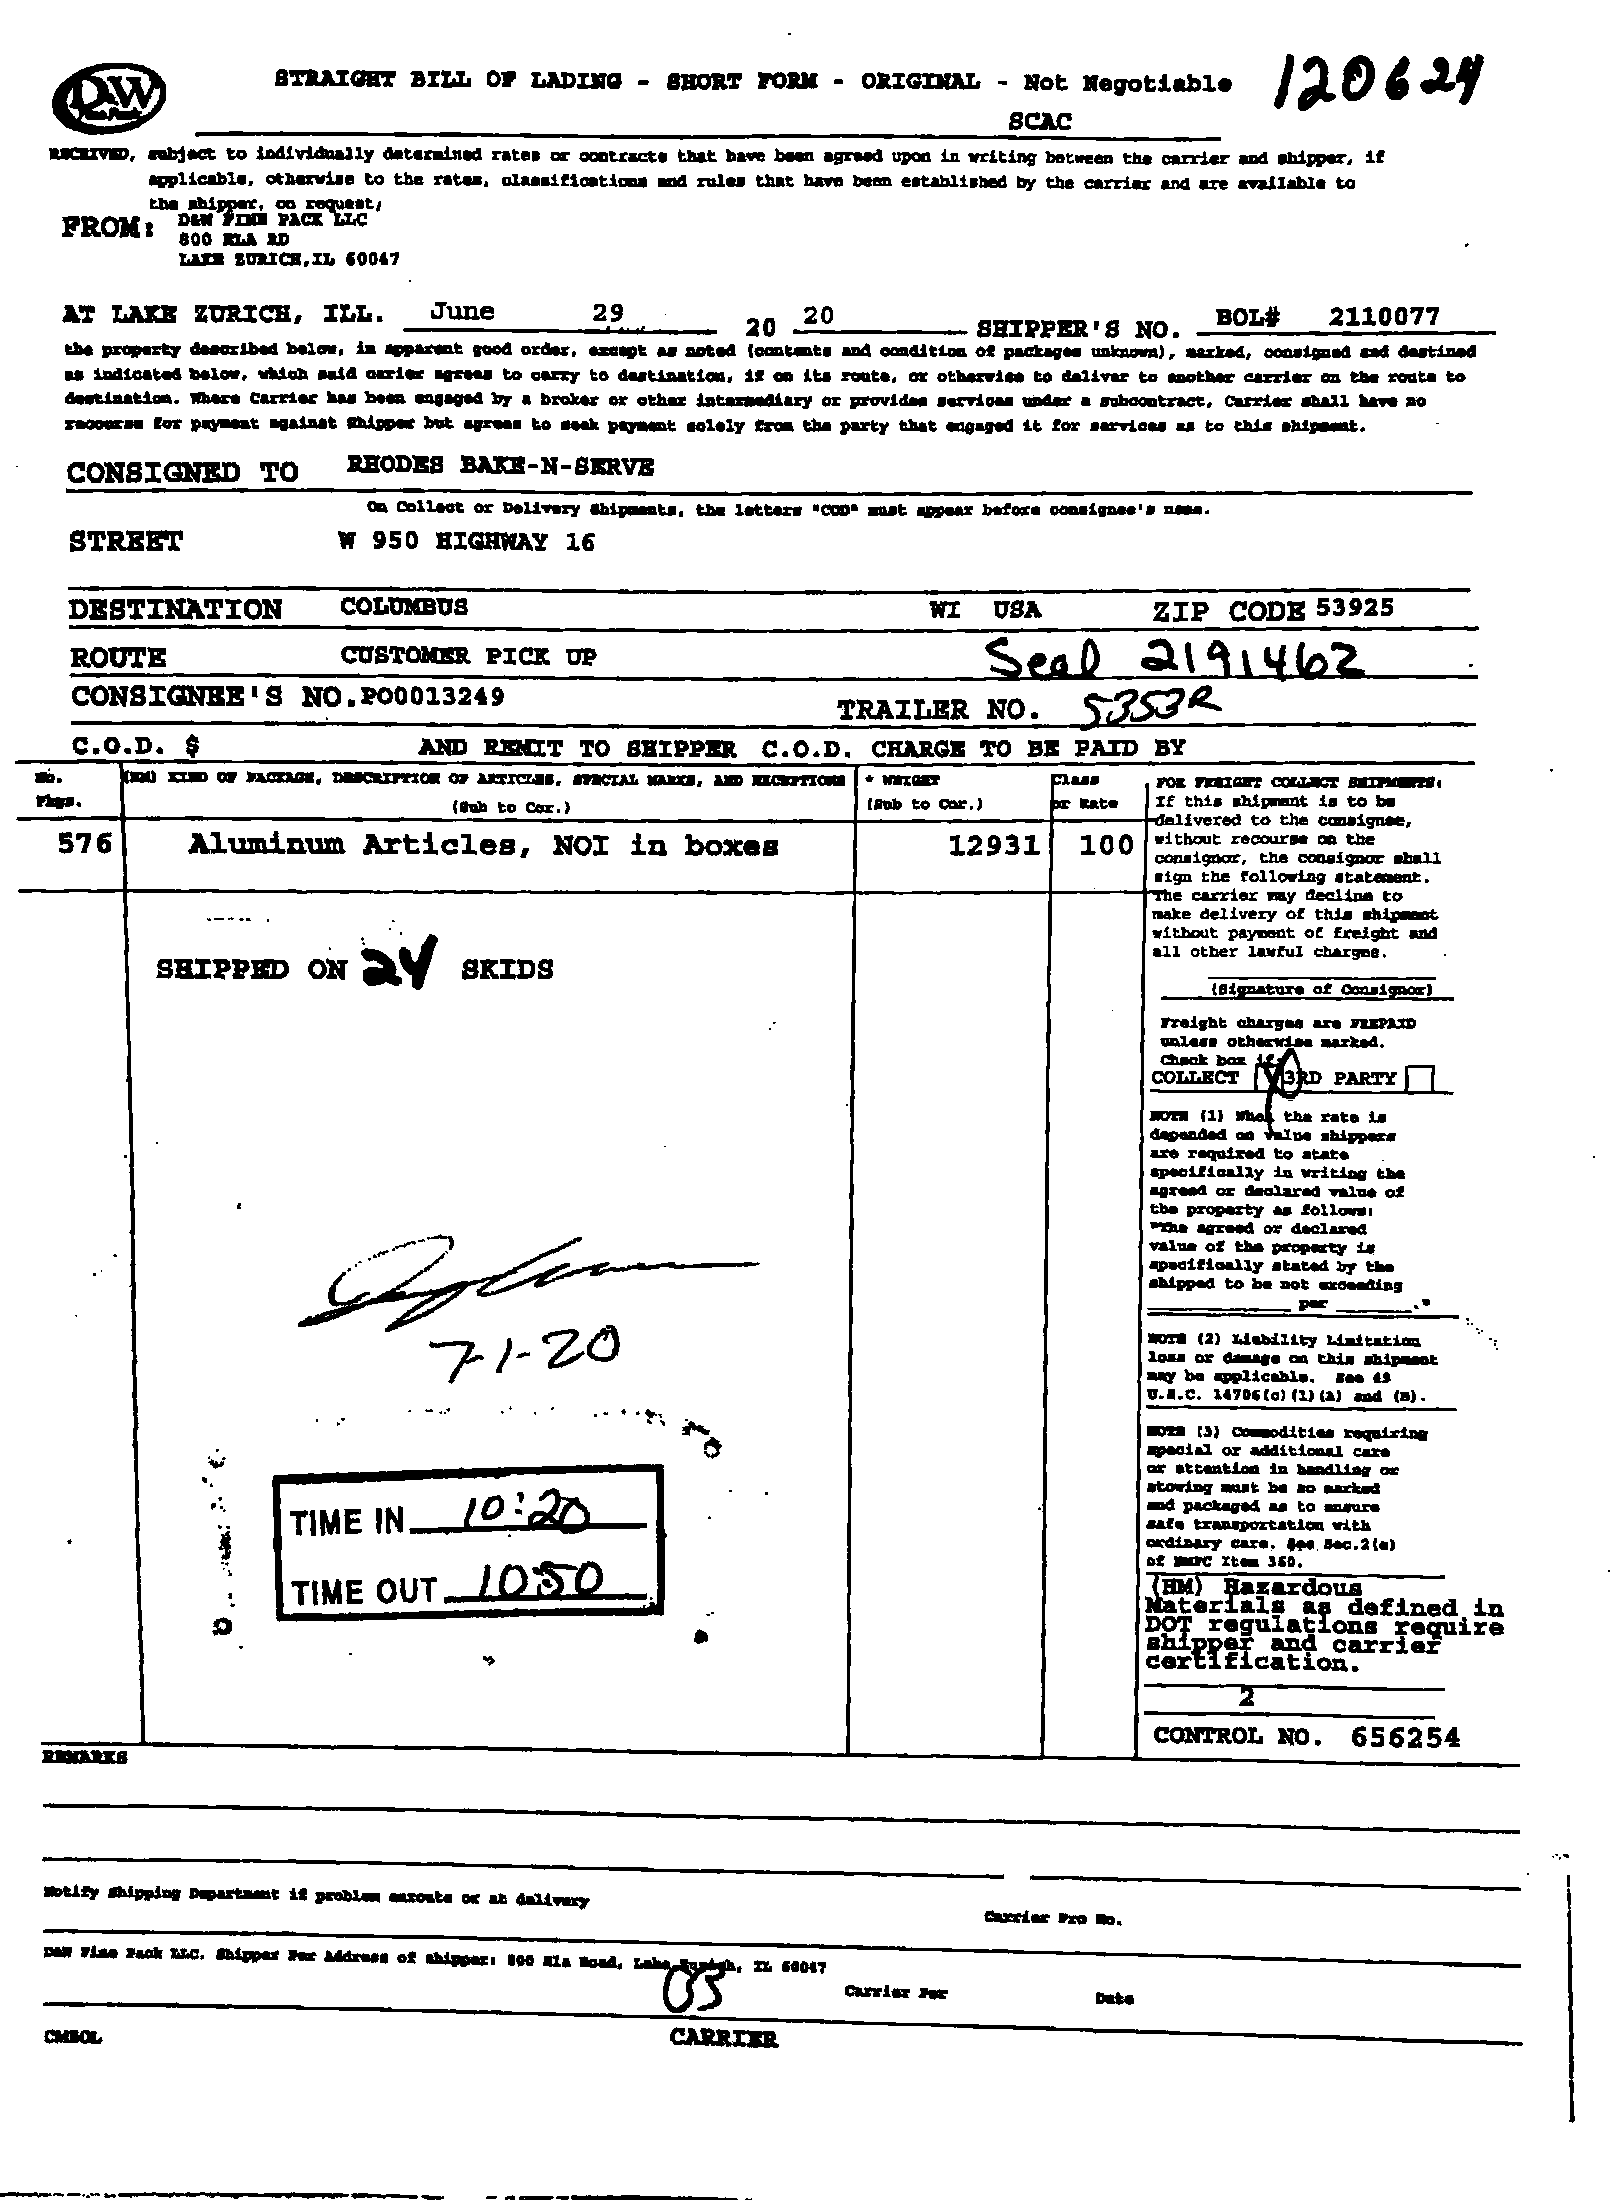 D&W
Fine Pack
STRAIGHT BILL OF LADING - SHORT FORM - ORIGINAL - Not Negotiable
120624
SCAC
RECEIVED, subject to individually determined rates or contracts that have been agreed upon in writing between the carrier and shipper, if
applicable, otherwise to the rates, classifications and rules that have been established by the carrier and are available to
the shipper, on request;
FROM: D&W FINE PACK LLC
800 ELA RD
LAKE ZURICH, IL 60047
AT LAKE ZURICH, ILL. June 29 20 20 SHIPPER'S NO. BOL# 2110077
the property described below, in apparent good order, except as noted (contents and condition of packages unknown), marked, consigned and destined
as indicated below, which said carrier agrees to carry to destination, if on its route, or otherwise to deliver to another carrier on the route to
destination. Where Carrier has been engaged by a broker or other intermediary or provides services under a subcontract, Carrier shall have no
recourse for payment against Shipper but agrees to seek payment solely from the party that engaged it for services as to this shipment.
CONSIGNED TO RHODES BAKE-N-SERVE
On Collect or Delivery Shipments, the letters "COD" must appear before consignee's name.
STREET W 950 HIGHWAY 16
DESTINATION COLUMBUS WI USA ZIP CODE 53925
ROUTE CUSTOMER PICK UP Seal 2191462
CONSIGNEE'S NO. PO0013249 TRAILER NO. 5353R
C.O.D. $ AND REMIT TO SHIPPER C.O.D. CHARGE TO BE PAID BY
No. Pkgs.
(HM) KIND OF PACKAGE, DESCRIPTION OF ARTICLES, SPECIAL MARKS, AND EXCEPTIONS
(Sub to Cor.)
* WEIGHT
(Sub to Cor.)
Class
or Rate
576 Aluminum Articles, NOI in boxes 12931 100
SHIPPED ON 24 SKIDS
7-1-20
TIME IN 10:20
TIME OUT 10:50
FOR FREIGHT COLLECT SHIPMENTS:
If this shipment is to be
delivered to the consignee,
without recourse on the
consignor, the consignor shall
sign the following statement.
The carrier may decline to
make delivery of this shipment
without payment of freight and
all other lawful charges.
(Signature of Consignor)
Freight charges are PREPAID
unless otherwise marked.
Check box if:
COLLECT 3RD PARTY
NOTE (1) When the rate is
depended on value shippers
are required to state
specifically in writing the
agreed or declared value of
the property as follows:
"The agreed or declared
value of the property is
specifically stated by the
shipped to be not exceeding
per ."
NOTE (2) Liability Limitation
loss or damage on this shipment
may be applicable. See 49
U.S.C. 14706(c)(1)(A) and (B).
NOTE (3) Commodities requiring
special or additional care
or attention in handling or
stowing must be so marked
and packaged as to ensure
safe transportation with
ordinary care. See Sec.2(e)
of NMFC Item 360.
(HM) Hazardous
Materials as defined in
DOT regulations require
shipper and carrier
certification.
2
CONTROL NO. 656254
REMARKS
Notify Shipping Department if problem enroute or at delivery
Carrier Pro No.
D&W Fine Pack LLC. Shipper Per Address of shipper: 800 Ela Road, Lake Zurich, IL 60047
Carrier Per Date
CMBOL CARRIER